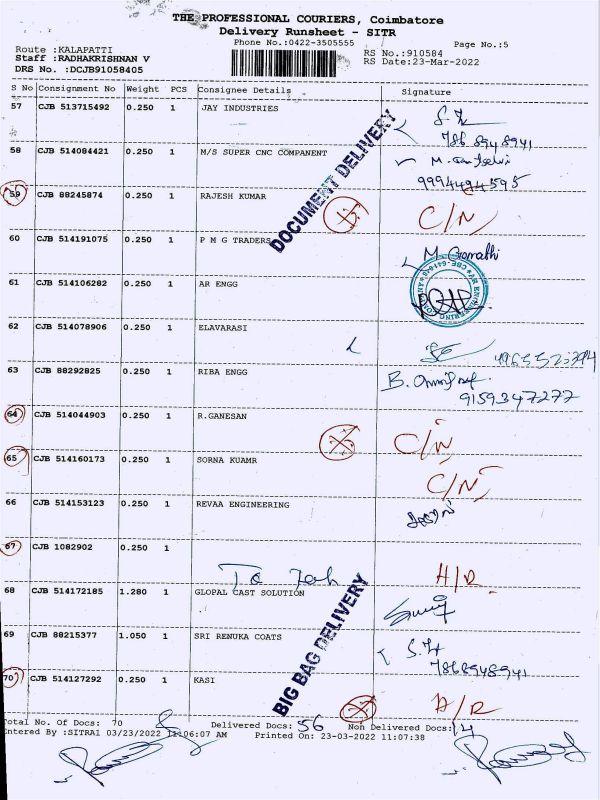 THE PROFESSIONAL COURIERS, Coimbatore
Delivery Runsheet - SITR
Phone No.:0422-3505555
Page No.:5
Route :KALAPATTI
RS No.:910584
Staff :RADHAKRISHNAN V
RS Date:23-Mar-2022
DRS No. :DCJB91058405
S No Consignment No Weight PCS Consignee Details Signature
57 CJB 513715492 0.250 1 JAY INDUSTRIES
7868948941
58 CJB 514084421 0.250 1 M/S SUPER CNC COMPANENT
9994494595
59 CJB 88245874 0.250 1 RAJESH KUMAR C/N
DOCUMENT DELIVERY
60 CJB 514191075 0.250 1 P M G TRADERS
61 CJB 514106282 0.250 1 AR ENGG
62 CJB 514078906 0.250 1 ELAVARASI
63 CJB 88292825 0.250 1 RIBA ENGG
9159347277
64 CJB 514044903 0.250 1 R.GANESAN C/N
65 CJB 514160173 0.250 1 SORNA KUAMR C/N
66 CJB 514153123 0.250 1 REVAA ENGINEERING
67 CJB 1082902 0.250 1
68 CJB 514172185 1.280 1 GLOPAL CAST SOLUTION
BIG BAG DELIVERY
69 CJB 88215377 1.050 1 SRI RENUKA COATS
7868948941
70 CJB 514127292 0.250 1 KASI
Total No. Of Docs: 70 Delivered Docs: 56 Non Delivered Docs: 14
Entered By :SITRA1 03/23/2022 11:06:07 AM Printed On: 23-03-2022 11:07:38